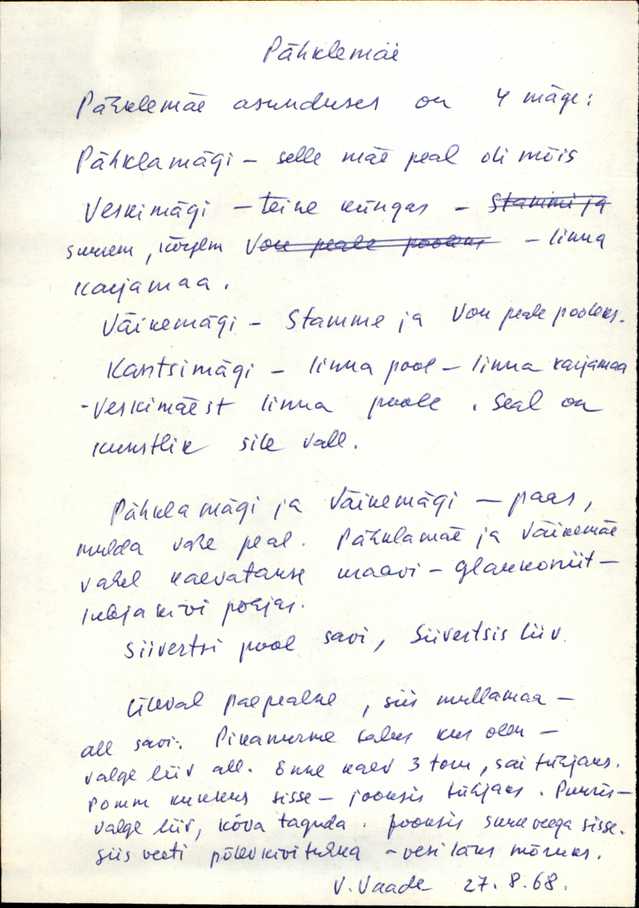 Pähklemäe
Pähklemäe asunduses on 4 mäge:
Pähklamägi – selle mäe peal oli mõis
Veskimägi – teine küngas – Stammi ja
suurem, kõrgem Vou peale pooleks – linna
karjamaa.
Väikemägi – Stamme ja Vou peale pooleks.
Kantsimägi – linna pool – linna karjamaa
- Veskimäest linna poole. Seal on
kunstlik sile vall.
Pähklamägi ja Väikemägi – paas,
mulda vähe peal. Pähklamäe ja Väikemäe
vahel kaevatakse maavi – glaukoniit –
lubjakivi põhjas.
Siivertsi pool savi, Siivertsis liiv.
Üleval paepealne, siis mullamaa –
all savi. Pikanurme talus kus olen –
valge liiv all. Enne kaev 3 toru, sai tühjaks.
Pomm kukkus sisse – jooksis tühjaks. Puuris –
valge liiv, kõva taguda. jooksis suure veega sisse.
siis veeti põlevkivi tuhka – vesi läks mõruks.
V. Vaade 27.8.68.